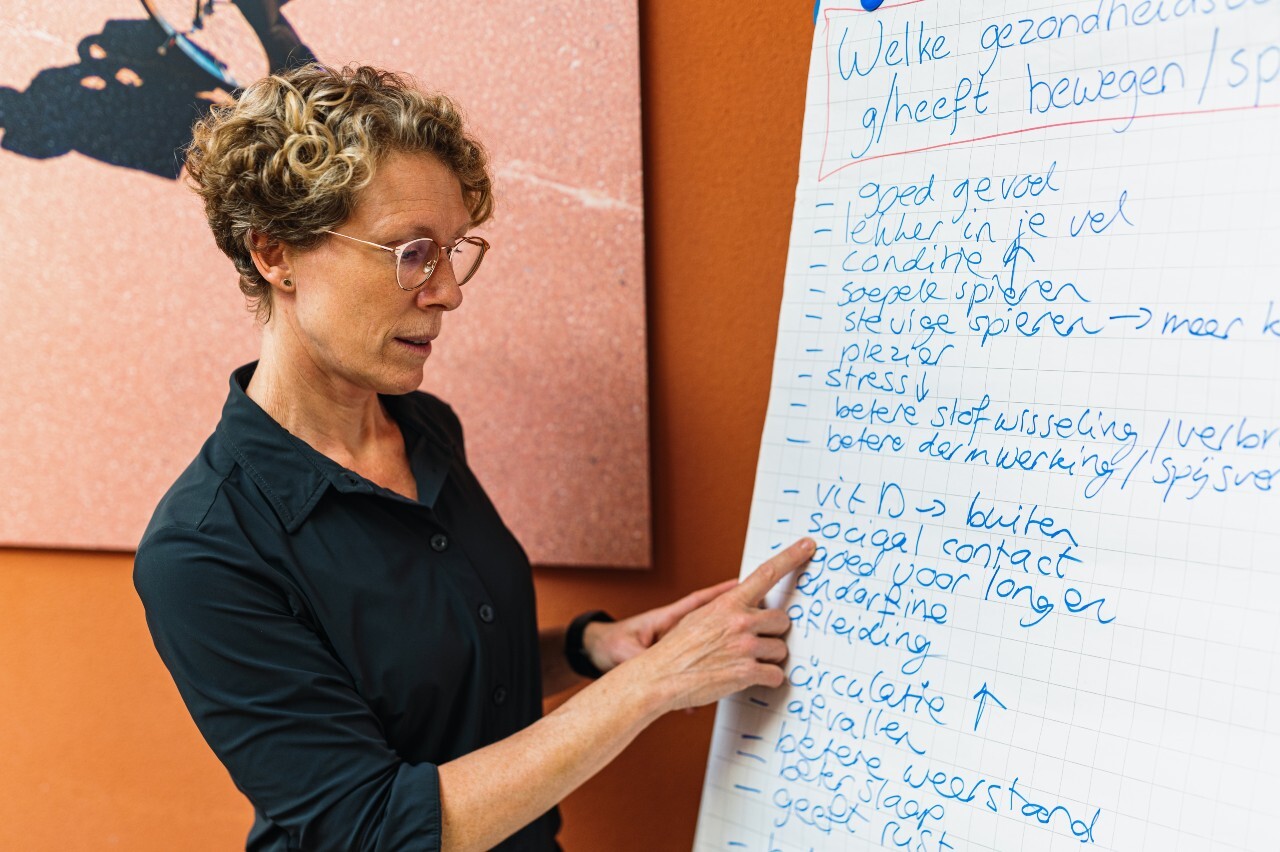 Welke gezondheids
g/heeft bewegen/sp
- goed gevoel
- lekker in je vel
- conditie ↑
- soepele spieren
- stevige spieren → meer k
- plezier
- stress ↓
- betere stofwisseling/verbr
- betere darmwerking/spijsver
- vit D → buiten
- sociaal contact
- goed voor longen
endorfine
afleiding
circulatie ↑
- afvallen
- betere weerstand
- beter slaap
- geeft rust